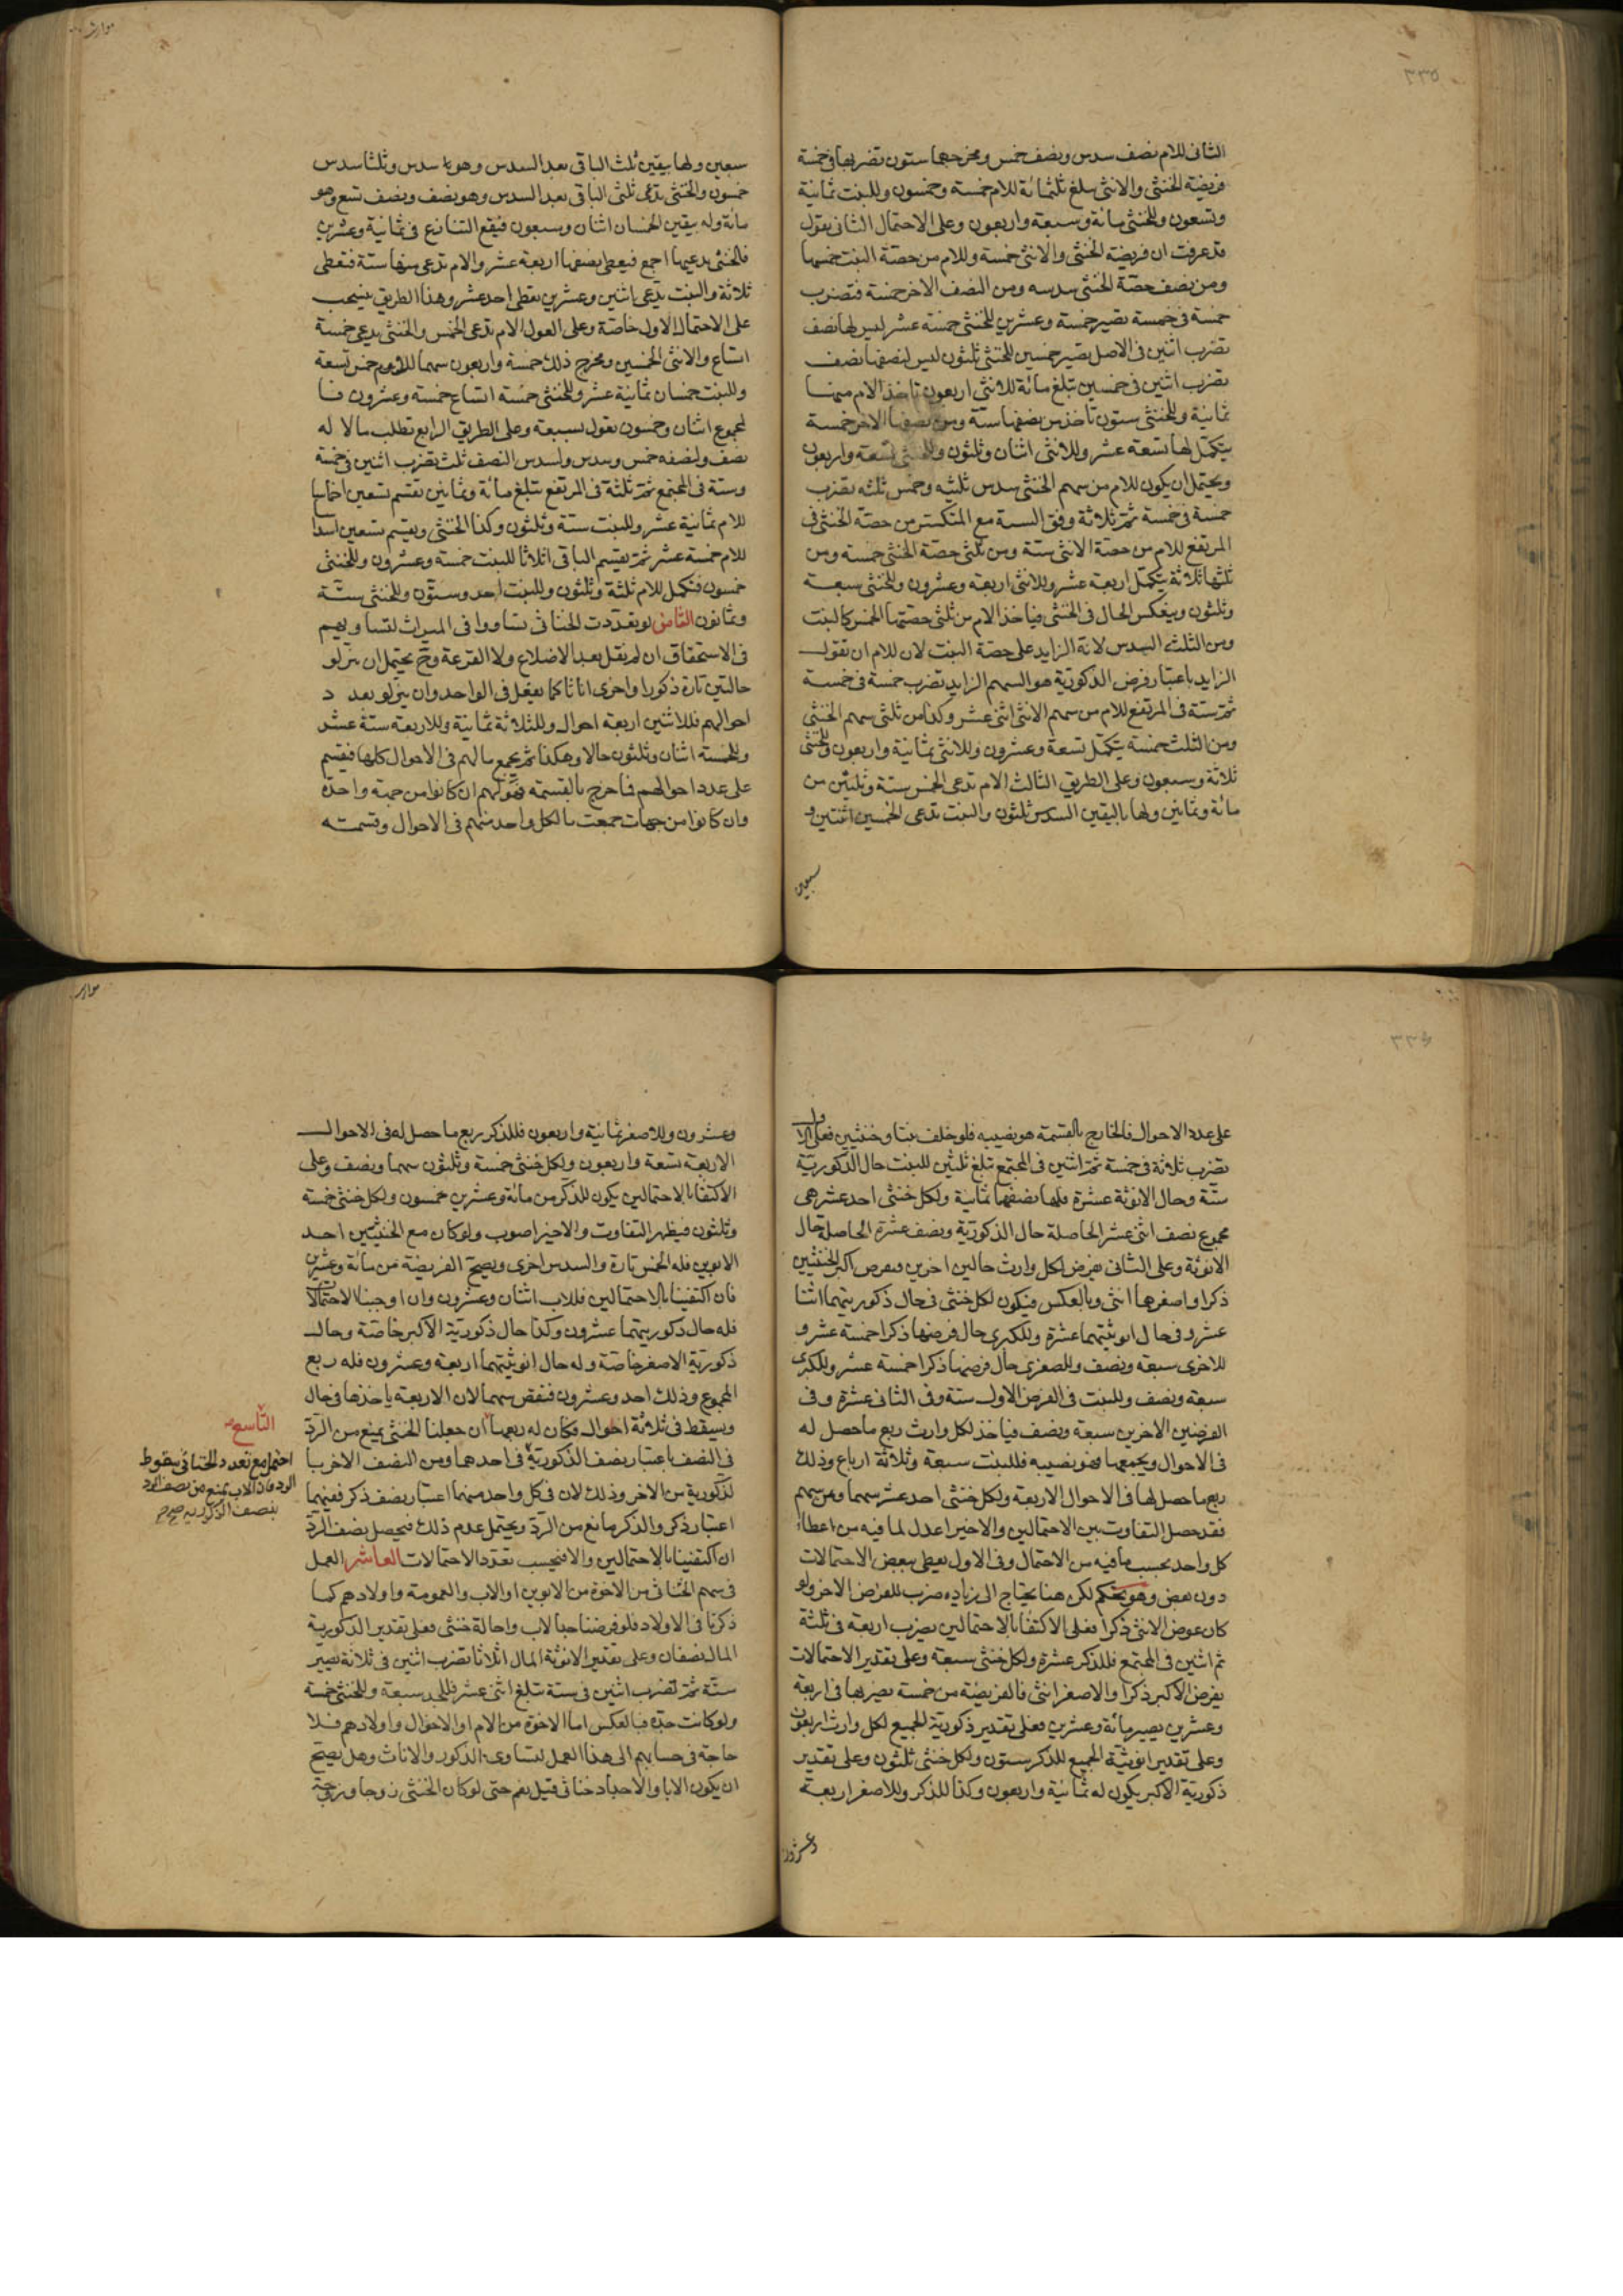 ٣٣٥
الثانی للام نصف سدس ونصف خمس ومخرجهما ستون تضربها فی خمسة
فریضة الخنثی والانثی یبلغ ثلثمائة للام خمسة وخمسون وللبنت ثمانیة
وتسعون وللخنثی مائة وسبعة واربعون وعلی الاحتمال الثانی نقول
قد عرفت ان فریضة الخنثی والانثی خمسة وللام من حصة البنت خمسها
ومن نصف حصّة الخنثی سدسه ومن النصف الاخر خمسة فتضرب
خمسة فی خمسة تصیر خمسة وعشرین للخنثی خمسة عشر لیس لها نصف
تضرب اثنین فی الاصل تصیر خمسین للخنثی ثلثون لیس لنصفها نصف
تضرب اثنین فی خمسین تبلغ مائة للانثی اربعون تاخذ الام منها
ثمانیة وللخنثی ستون تاخذ من نصفها ستّة ومن نصفها الاخر خمسة
یتکمّل لها تسعة عشر وللانثی اثنان وثلثون وللخنثی تسعة واربعون
ویحتمل ان یکون للام من سهم الخنثی سدس ثلثیه وخمس ثلثه تضرب
خمسة فی خمسة ثمّ ثلاثة وفق الستة مع المنکسر من حصّة الخنثی فی
المرتفع للام من حصة الانثی ستة ومن ثلثی حصّة الخنثی خمسة ومن
ثلثها ثلاثة یتکمّل اربعة عشر وللانثی اربعة وعشرون وللخنثی سبعة
وثلثون وینعکس الحال فی الخنثی فیاخذ الام من ثلثی حصّتها الخمس کالبنت
ومن الثلث السدس لانه الزاید علی حصة البنت لان للام ان تقول
الزاید باعتبار فرض الذکوریة هو السهم الزاید تضرب خمسة فی خمسة
ثمّ ستة فی المرتفع للام من سهم الانثی اثنی عشر وکذا من ثلثی سهم الخنثی
ومن الثلث خمسة یتکمّل تسعة وعشرون وللانثی ثمانیة واربعون وللخنثی
ثلاثة وسبعون وعلی الطریق الثالث الام تدعی الخمس ستة وثلثین من
مائة وثمانین ولها بالیقین السدس ثلثون والبنت تدعی الخمسین اثنتین و
سبعین
سبعین ولها بیقین ثلث الباقی بعد السدس وهو سدس وثلثا سدس
خمسون والخنثی تدعی ثلثی الباقی بعد السدس وهو نصف ونصف تسع وهو
مائة وله بیقین الخمسان اثنان وسبعون فیقع التنازع فی ثمانیة وعشرین
فالخنثی یدعیها اجمع فیعطی نصفها اربعة عشر والام تدعی منها ستة فتعطی
ثلاثة والبنت تدّعی اثنین وعشرین تعطی احد عشر وهذا الطریق ینسحب
علی الاحتمال الاول خاصّة وعلی العول الام تدعی الخمس والخنثی یدعی خمسة
اتساع والانثی الخمسین ومخرج ذلک خمسة واربعون سهما للام خمس تسعة
وللبنت خمسان ثمانیة عشر وللخنثی خمسة اتساع خمسة وعشرون فا
لمجموع اثنان وخمسون نقول بسبعة وعلی الطریق الرابع تطلب مالا له
نصف ولنصفه خمس وسدس ولسدس النصف ثلث تضرب اثنین فی خمسة
وستة فی المجتمع ثمّ ثلثة فی المرتفع تبلغ مائة وثمانین تقسم تسعین اخماسا
للام ثمانیة عشر وللبنت ستة وثلثون وکذا الخنثی ویقسم تسعین اسداسا
للام خمسة عشر ثمّ یقسم الباقی اثلاثا للبنت خمسة وعشرون وللخنثی
خمسون فتکمل للام ثلثة وثلثون وللبنت احد وستّون وللخنثی ستّة
وثمانون الثامن لو تعددت الخناثی تساووا فی المیراث لتساویهم
فی الاستحقاق ان لم نقل بعد الاضلاع ولا القرعة وح یحتمل ان ینزلو
حالتین تارة ذکورا واخری اناثا کما یفعل فی الواحد وان ینزلو بعد د
احوالهم فللاثنین اربعة احوال وللثلاثة ثمانیة وللاربعة ستة عشر
وللخمسة اثنان وثلثون حالا وهکذا ثمّ یجمع مالهم فی الاحوال کلها فیقسم
علی عدد احوالهم فما خرج بالقسمة فهو لهم ان کانوا من جهة واحدة
وان کانوا من جهات جمعت ما لکل واحد منهم فی الاحوال وقسمته
علی عدد الاحوال فالخارج بالقسمة هو نصیبه فلو خلف بنتا وخنثیین فعلی الاول
تضرب ثلاثة فی خمسة ثمّ اثنین فی المجتمع تبلغ ثلثین للبنت حال الذکوریّة
ستّة وحال الانوثة عشرة فلها نصفهما ثمانیة ولکل خنثی احد عشر هی
مجموع نصف اثنی عشر الحاصلة حال الذکوریّة ونصف عشرة الحاصلة حال
الانوثة وعلی الثانی نفرض لکل وارث حالین اخرین ففرض اکبر الخنثیین
ذکرا واصغرهما انثی وبالعکس فیکون لکل خنثی فی حال ذکوریتهما اثنا
عشر وفی حال انوثتهما عشرة وللکبری حال فرضها ذکرا خمسة عشر و
للاخری سبعة ونصف وللصغری حال فرضها ذکرا خمسة عشر وللکبری
سبعة ونصف وللبنت فی الفرض الاول ستة وفی الثانی عشرة وفی
الفرضین الاخرین سبعة ونصف فیاخذ لکل وارث ربع ما حصل له
فی الاحوال ویجمعها فهو نصیبه فللبنت سبعة وثلاثة ارباع وذلک
ربع ما حصل لها فی الاحوال الاربعة ولکل خنثی احد عشر سهما وثمن سهم
فقد حصل التفاوت بین الاحتمالین والاخیر اعدل لما فیه من اعطاء
کل واحد بحسب ما فیه من الاحتمال وفی الاول یعطی ببعض الاحتمالات
دون بعض وهو تحکم لکن هنا یحتاج الی زیادة ضرب للفرض الاخر ولو
کان عوض الانثی ذکرا فعلی الاکتفا بالاحتمالین یضرب اربعة فی ثلثة
ثم اثنین فی المجتمع فللذکر عشرة ولکل خنثی سبعة وعلی تقدیر الاحتمالات
یفرض الاکبر ذکرا والاصغر انثی فالفریضة من خمسة نضربها فی اربعة
وعشرین یصیر مائة وعشرین فعلی تقدیر ذکوریة الجمیع لکل وارث اربعون
وعلی تقدیر انوثیّة الجمیع للذکر ستون ولکل خنثی ثلثون وعلی تقدیر
ذکوریّة الاکبر یکون له ثمانیة واربعون وکذا للذکر وللاصغر اربعة
وعشرون
وعشرون وللاصغر ثمانیة واربعون فللذکر ربع ما حصل له فی الاحوال
الاربعة تسعة واربعون ولکل خنثی خمسة وثلثون سهما ونصف وعلی
الاکتفا بالاحتمالین یکون للذکر من مائة وعشرین خمسون ولکل خنثی خمسة
وثلثون فیظهر التفاوت والاخیر اصوب ولو کان مع الخنثیین احد
الابوین فله الخمس تارة والسدس اخری ویصح الفریضة من مائة وعشرین
فان اکتفینا بالاحتمالین فللاب اثنان وعشرون وان اوجبنا الاحتمالات
فله حال ذکوریتهما عشرون وکذا حال ذکوریّة الاکبر خاصّة وحال
ذکوریّة الاصغر خاصّة وله حال انوثیّتهما اربعة وعشرون فله ربع
المجموع وذلک احد وعشرون فنقص سهما لان الاربعة یاخذها فی حال
ویسقط فی ثلاثة احوال فکان له ربعها ان جعلنا الخنثی یمنع من الردّ
فی النصف باعتبار نصف الذکوریّة فی احدهما ومن النصف الاخر با
لذکوریة من الاخر وذلک لان فی کل واحد منهما اعتبار نصف ذکر ففیهما
اعتبار ذکر والذکر مانع من الردّ ویحتمل عدم ذلک فیحصل نصف الردّ
ان اکتفینا بالاحتمالین والا فبحسب تعدّد الاحتمالات العاشر العمل
فی سهم الخناثی من الاخوة من الابوین او الاب والعمومة واولادهم کما
ذکرنا فی الاولاد فلو فرضنا جدا لاب واخا له خنثی فعلی تقدیر الذکوریة
المال نصفان وعلی تقدیر الانوثة المال اثلاثا تضرب اثنین فی ثلاثة تصیر
ستّة ثمّ تضرب اثنین فی ستة تبلغ اثنی عشر فللجد سبعة وللخنثی خمسة
ولو کانت جدّة فبالعکس اما الاخوة من الام او الاخوال واولادهم فلا
حاجة فی حسابهم الی هذا العمل لتساوی الذکور والاناث وهل یصحّ
ان یکون الابا والاجداد خناثی قیل نعم حتی لو کان الخنثی زوجا وزوجة
التّاسع
احتمل مع تعدد الخناثی سقوط
الرد فان الاب یمنع من نصف الرد
بنصف الذکوریه